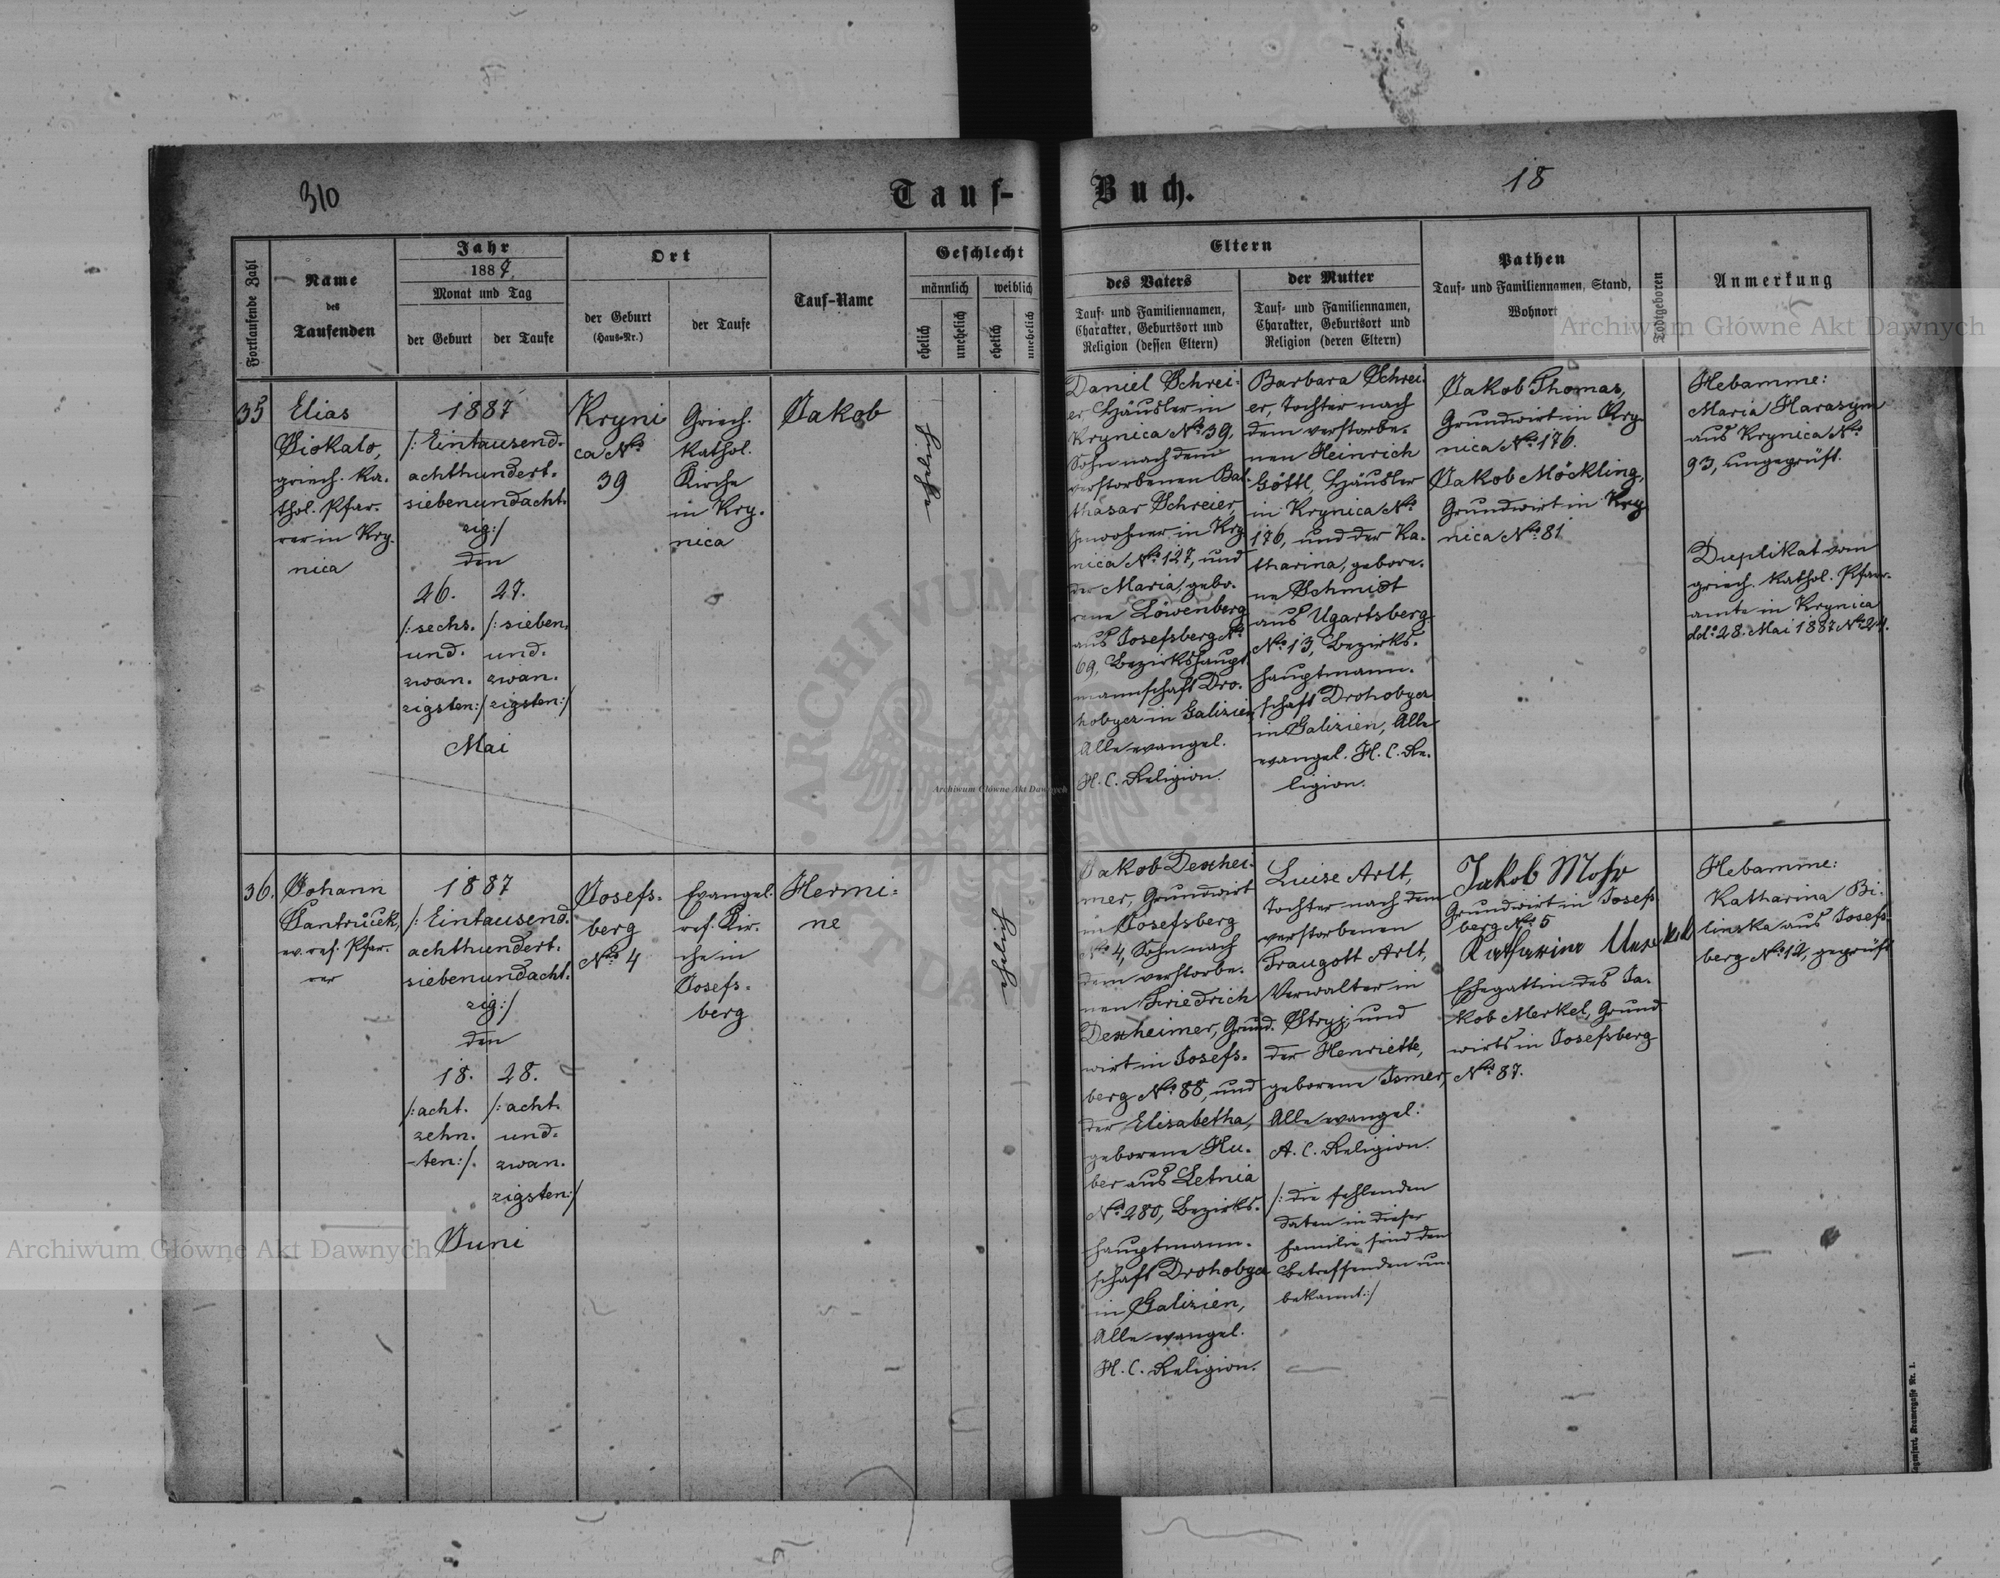 310
Tauf-
Buch.
18
Fortlaufende Zahl
Name
des
Taufenden
Jahr
1887
Monat und Tag
der Geburt
der Taufe
Ort
der Geburt
(Haus-Nr.)
der Taufe
Tauf-Name
Geschlecht
männlich
weiblich
ehelich
unehelich
ehelich
unehelich
Eltern
des Vaters
Tauf- und Familiennamen,
Charakter, Geburtsort und
Religion (dessen Eltern)
der Mutter
Tauf- und Familiennamen,
Charakter, Geburtsort und
Religion (deren Eltern)
Pathen
Tauf- und Familiennamen, Stand,
Wohnort
Todtgeboren
Anmerkung
35
Elias
Siokalo,
griech. ka-
thol. Pfar-
rer in Kry-
nica
1887
/: Eintausend-
achthundert-
siebenundacht-
zig :/
den
26.
/: sechs-
und-
zwan-
zigsten :/
27.
/: sieben-
und-
zwan-
zigsten :/
Mai
Kryni
ca No
39
Griech.
kathol.
Kirche
in Kry-
nica
Jakob
ehelich
Daniel Schrei-
er Häusler in
Krynica No 39,
Sohn nach dem
verstorbenen Bal-
thasar Schreier,
Inwohner in Kry
nica No 127, und
der Maria, gebo-
rene Löwenberg
aus Josefsberg No
69, Bezirkshaupt
mannschaft Dro-
hobycz in Galizien
Alle evangel.
H. C. Religion.
Barbara Schrei-
er, Tochter nach
dem verstorbe-
nen Heinrich
Göttl, Häusler
in Krynica No
176, und der Ka-
tharina, gebore-
ne Schmidt
aus Ugartsberg
No 13, Bezirks-
hauptmann-
schaft Drohobycz
in Galizien, Alle
evangel. H. C. Re-
ligion.
Jakob Thomas,
Grundwirt in Kry-
nica No 176.
Jakob Möckling,
Grundwirt in Kry
nica No 81
Hebamme:
Maria Harasym
aus Krynica No
93, ungeprüft.
Duplikat vom
griech. kathol. Pfarr-
amte in Krynica
dd. 28. Mai 1887 No 24.
36.
Johann
Pantrůček,
ev. ref. Pfar-
rer
1887
/: Eintausend-
achthundert-
siebenundacht-
zig :/
den
18.
/: acht-
zehn-
-ten :/.
28.
/: acht-
und-
zwan-
zigsten :/
Juni
Josefs-
berg
No 4
Evangel.
ref. Kir-
che in
Josefs-
berg
Hermi-
ne
ehelich
Jakob Dexhei-
mer, Grundwirt
in Josefsberg
No 4, Sohn nach
dem verstorbe-
nen Friedrich
Dexheimer, Grund-
wirt in Josefs-
berg No 88, und
der Elisabetha,
geborene Hu-
ber aus Letnia
No 280, Bezirks-
hauptmann-
schaft Drohobycz
in Galizien,
Alle evangel.
H. C. Religion.
Luise Arlt,
Tochter nach dem
verstorbenen
Traugott Arlt,
Verwalter in
Stryj, und
der Henriette,
geborene Ismer,
Alle evangel.
A. C. Religion.
/: die fehlenden
Daten in dieser
Familie sind den
Betreffenden un-
bekannt :/
Jakob Mohr
Grundwirt in Josefs
berg No 5
Katharina Merkel
Ehegattin des Ja-
kob Merkel, Grund
wirts in Josefsberg
No 87.
Hebamme:
Katharina Bi-
linska aus Josefs-
berg No 12, geprüft
Archiwum Główne Akt Dawnych
Archiwum Główne Akt Dawnych
Archiwum Główne Akt Dawnych